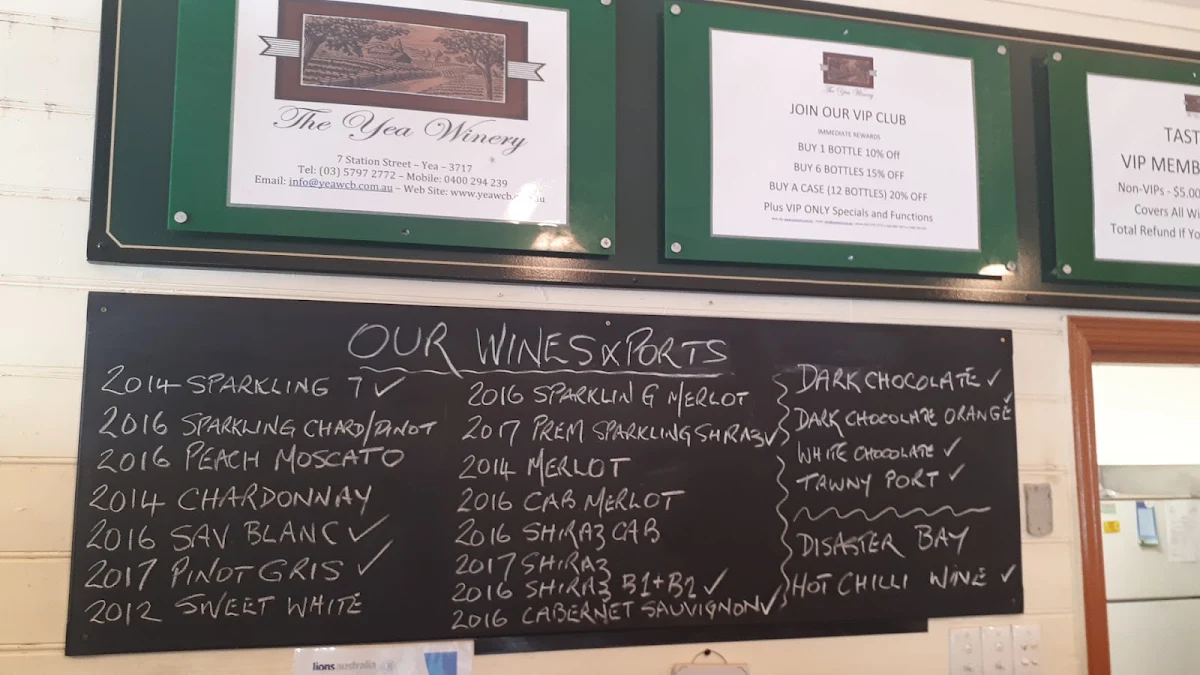 The Yea Winery
7 Station Street – Yea – 3717
Tel: (03) 5797 2772 – Mobile: 0400 294 239
Email: info@yeawcb.com.au – Web Site: www.yeawcb.com.au
The Yea Winery
JOIN OUR VIP CLUB
IMMEDIATE REWARDS
BUY 1 BOTTLE 10% Off
BUY 6 BOTTLES 15% OFF
BUY A CASE (12 BOTTLES) 20% OFF
Plus VIP ONLY Specials and Functions
TAST
VIP MEMB
Non-VIPs - $5.00
Covers All Wi
Total Refund If Yo
OUR WINES & PORTS
2014 SPARKLING T ✓
2016 SPARKLING CHARD/PINOT
2016 PEACH MOSCATO
2014 CHARDONNAY
2016 SAV BLANC ✓
2017 PINOT GRIS ✓
2012 SWEET WHITE
2016 SPARKLING MERLOT
2017 PREM SPARKLING SHIRAZ ✓
2014 MERLOT
2016 CAB MERLOT
2016 SHIRAZ CAB
2017 SHIRAZ
2016 SHIRAZ B1+B2 ✓
2016 CABERNET SAUVIGNON ✓
DARK CHOCOLATE ✓
DARK CHOCOLATE ORANGE ✓
WHITE CHOCOLATE ✓
TAWNY PORT ✓
DISASTER BAY
HOT CHILLI WINE ✓
lionsaustralia